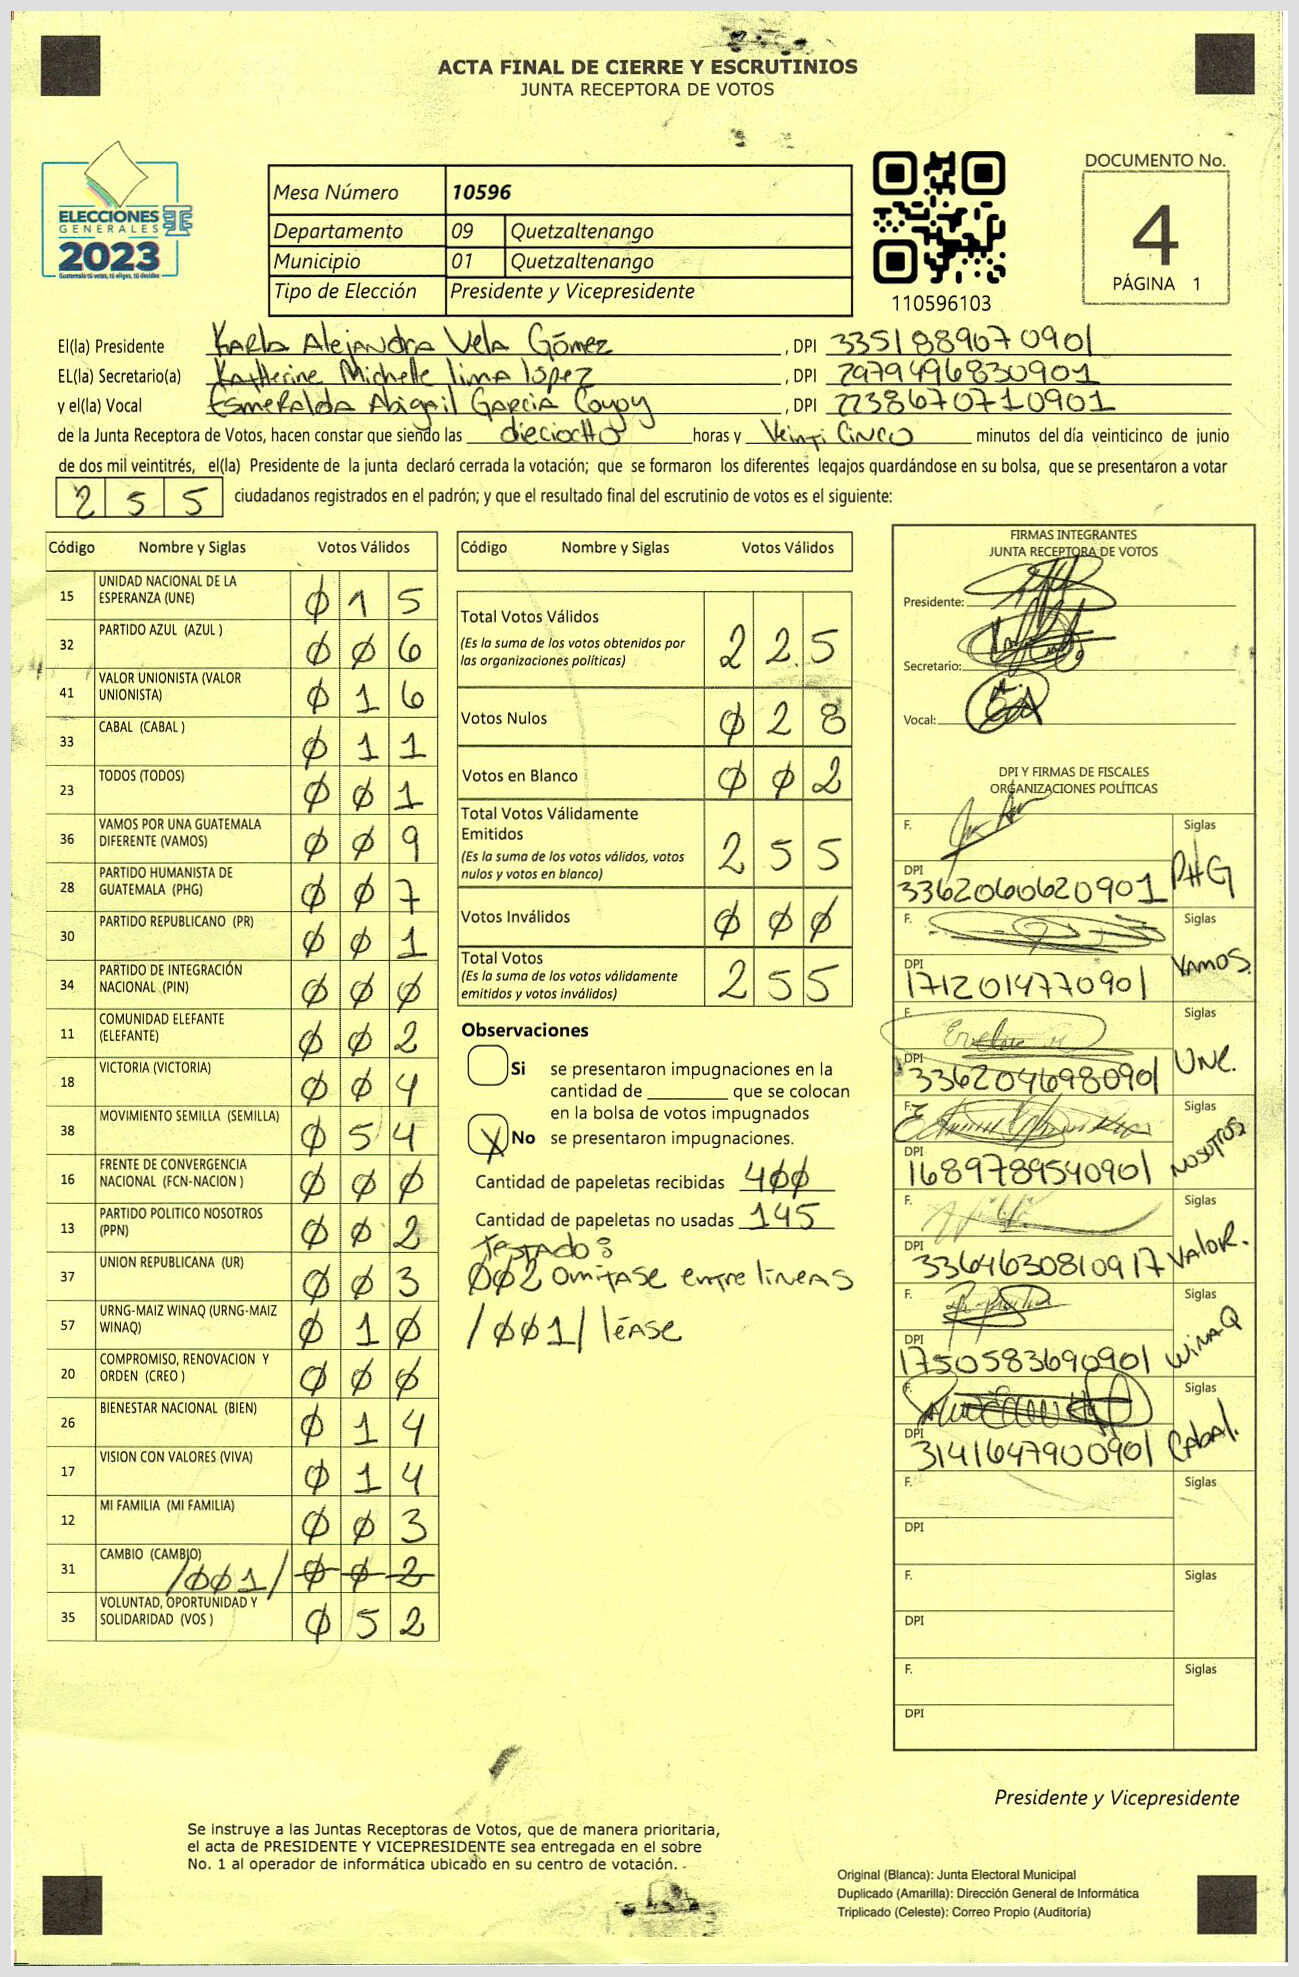 ACTA FINAL DE CIERRE Y ESCRUTINIOS
JUNTA RECEPTORA DE VOTOS
ELECCIONES
GENERALES
2023
Mesa Número 10596
Departamento 09 Quetzaltenango
Municipio 01 Quetzaltenango
Tipo de Elección Presidente y Vicepresidente
110596103
DOCUMENTO No.
4
PÁGINA 1
El(la) Presidente Karla Alejandra Vela Gómez , DPI 3351889070901
EL(la) Secretario(a) Katherine Michelle lima lópez , DPI 2979496830901
y el(la) Vocal Esmeralda Abigail García Coyoy , DPI 2238670710901
de la Junta Receptora de Votos, hacen constar que siendo las dieciocho horas y Veinti Cinco minutos del día veinticinco de junio
de dos mil veintitrés, el(la) Presidente de la junta declaró cerrada la votación; que se formaron los diferentes legajos guardándose en su bolsa, que se presentaron a votar
2 5 5 ciudadanos registrados en el padrón; y que el resultado final del escrutinio de votos es el siguiente:
Código Nombre y Siglas Votos Válidos
15 UNIDAD NACIONAL DE LA ESPERANZA (UNE) 0 1 5
32 PARTIDO AZUL (AZUL ) 0 0 6
41 VALOR UNIONISTA (VALOR UNIONISTA) 0 1 6
33 CABAL (CABAL ) 0 1 1
23 TODOS (TODOS) 0 0 1
36 VAMOS POR UNA GUATEMALA DIFERENTE (VAMOS) 0 0 9
28 PARTIDO HUMANISTA DE GUATEMALA (PHG) 0 0 7
30 PARTIDO REPUBLICANO (PR) 0 0 1
34 PARTIDO DE INTEGRACIÓN NACIONAL (PIN) 0 0 0
11 COMUNIDAD ELEFANTE (ELEFANTE) 0 0 2
18 VICTORIA (VICTORIA) 0 0 4
38 MOVIMIENTO SEMILLA (SEMILLA) 0 5 4
16 FRENTE DE CONVERGENCIA NACIONAL (FCN-NACION ) 0 0 0
13 PARTIDO POLITICO NOSOTROS (PPN) 0 0 2
37 UNION REPUBLICANA (UR) 0 0 3
57 URNG-MAIZ WINAQ (URNG-MAIZ WINAQ) 0 1 0
20 COMPROMISO, RENOVACION Y ORDEN (CREO ) 0 0 0
26 BIENESTAR NACIONAL (BIEN) 0 1 4
17 VISION CON VALORES (VIVA) 0 1 4
12 MI FAMILIA (MI FAMILIA) 0 0 3
31 CAMBIO (CAMBIO) /001/ 0 0 2
35 VOLUNTAD, OPORTUNIDAD Y SOLIDARIDAD (VOS ) 0 5 2
Código Nombre y Siglas Votos Válidos
Total Votos Válidos 2 2 5
(Es la suma de los votos obtenidos por
las organizaciones políticas)
Votos Nulos 0 2 8
Votos en Blanco 0 0 2
Total Votos Válidamente
Emitidos 2 5 5
(Es la suma de los votos válidos, votos
nulos y votos en blanco)
Votos Inválidos 0 0 0
Total Votos 2 5 5
(Es la suma de los votos válidamente
emitidos y votos inválidos)
Observaciones
Si se presentaron impugnaciones en la
cantidad de ________ que se colocan
en la bolsa de votos impugnados
X No se presentaron impugnaciones.
Cantidad de papeletas recibidas 400
Cantidad de papeletas no usadas 145
Testado:
002 omítase entre líneas
/001/ léase
FIRMAS INTEGRANTES
JUNTA RECEPTORA DE VOTOS
Presidente:
Secretario:
Vocal:
DPI Y FIRMAS DE FISCALES
ORGANIZACIONES POLÍTICAS
F. Siglas
DPI 3362060620901 PHG
F. Siglas
DPI 1712014770901 VAMOS.
F. Siglas
DPI 3362046980901 UNE.
F. Siglas
DPI 1689789540901 NOSOTROS
F. Siglas
DPI 3364630810917 VALOR.
F. Siglas
DPI 1750583690901 WINAQ
F. Siglas
DPI 3141647900901 Cabal.
F. Siglas
DPI
F. Siglas
DPI
F. Siglas
DPI
Presidente y Vicepresidente
Se instruye a las Juntas Receptoras de Votos, que de manera prioritaria,
el acta de PRESIDENTE Y VICEPRESIDENTE sea entregada en el sobre
No. 1 al operador de informática ubicado en su centro de votación.
Original (Blanca): Junta Electoral Municipal
Duplicado (Amarilla): Dirección General de Informática
Triplicado (Celeste): Correo Propio (Auditoría)